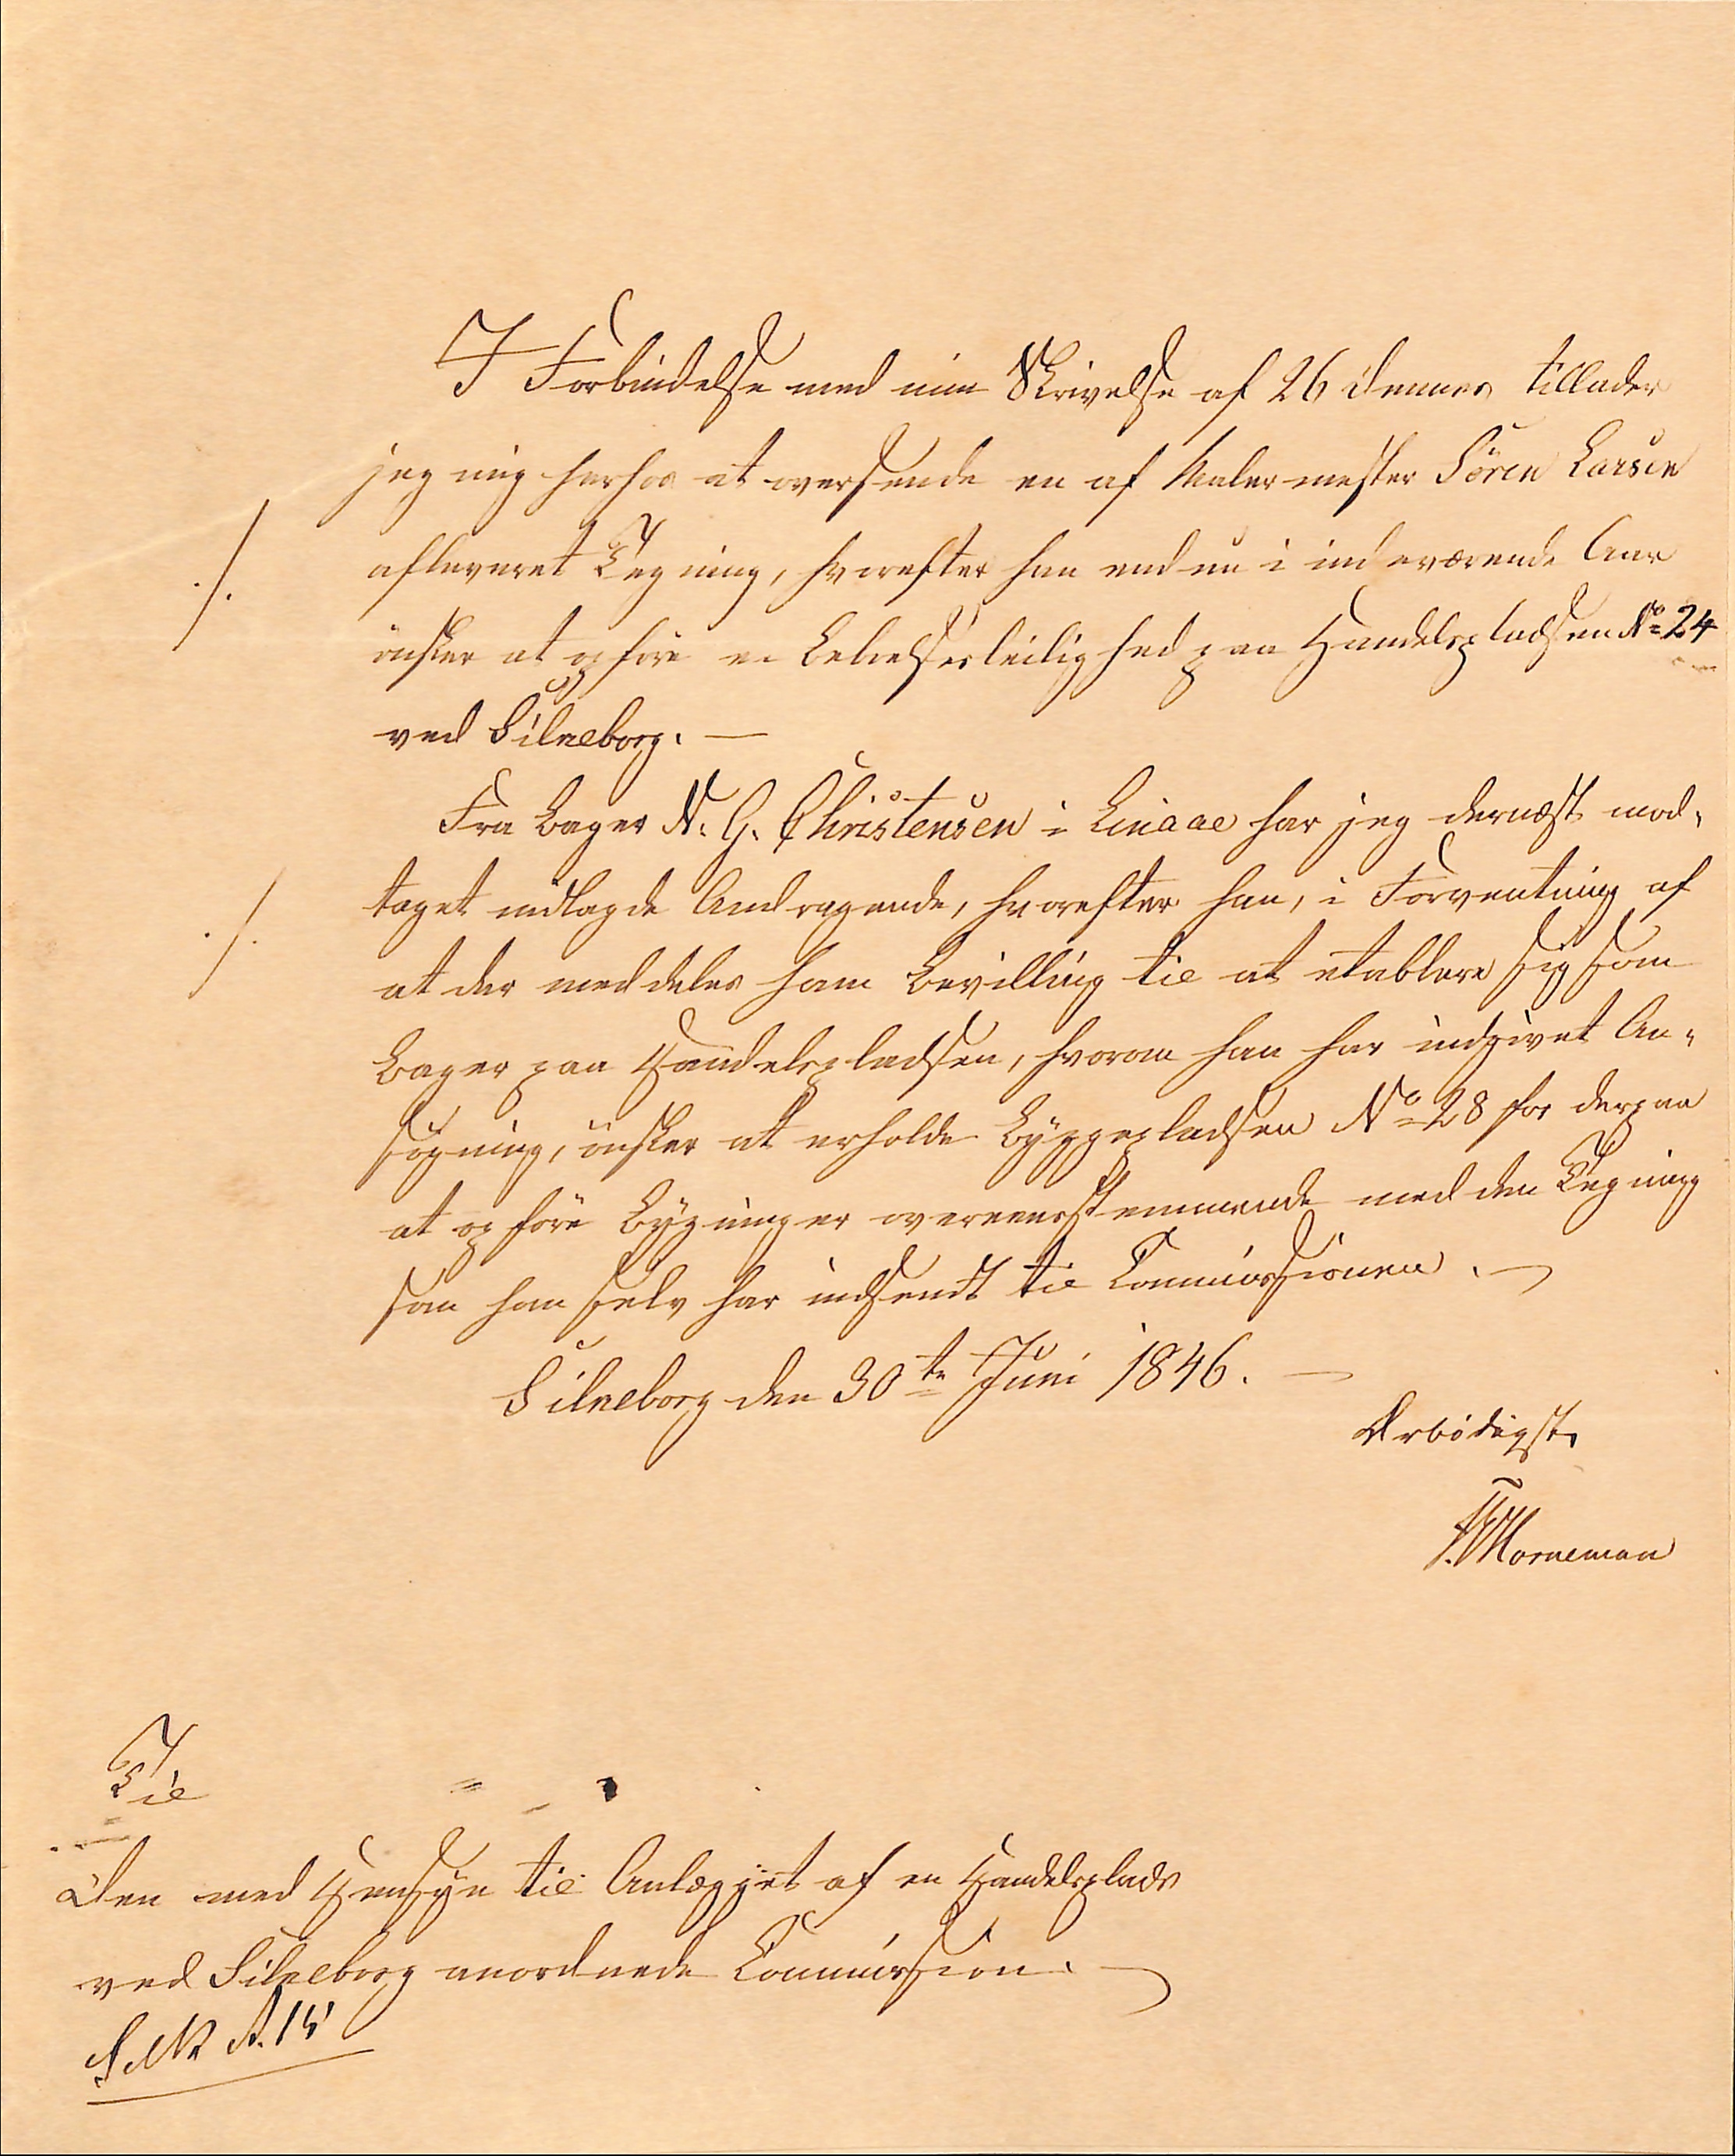 I Forbindelse med min Skrivelse af 26 dennes tillader
jeg mig herhos at oversende en af Malermester Sören Larsen
./. afleveret Tegning, hvorefter han endnu i indeværende Aar
önsker at opföre en Beboelsesleilighed paa Handelspladsen No 24
ved Silkeborg. —
Fra Bager N. G. Christensen i Linaae har jeg dernæst mod-
./. taget indlagde Andragende, hvorefter han, i Forventning af
at der meddeles ham Bevilling til at etablere sig som
Bager paa Handelspladsen, hvorom han har indgivet An-
sögning, önsker at erholde Byggepladsen No 28 for derpaa
at opföre Bygninger overeensstemmende med den Tegning
som han selv har indsendt til Commissionen. —
Silkeborg den 30te Juni 1846. —
Ærbödigst,
Horneman
Til
Den med Hensyn til Anlægget af en Handelsplads
ved Silkeborg anordnede Commission. —